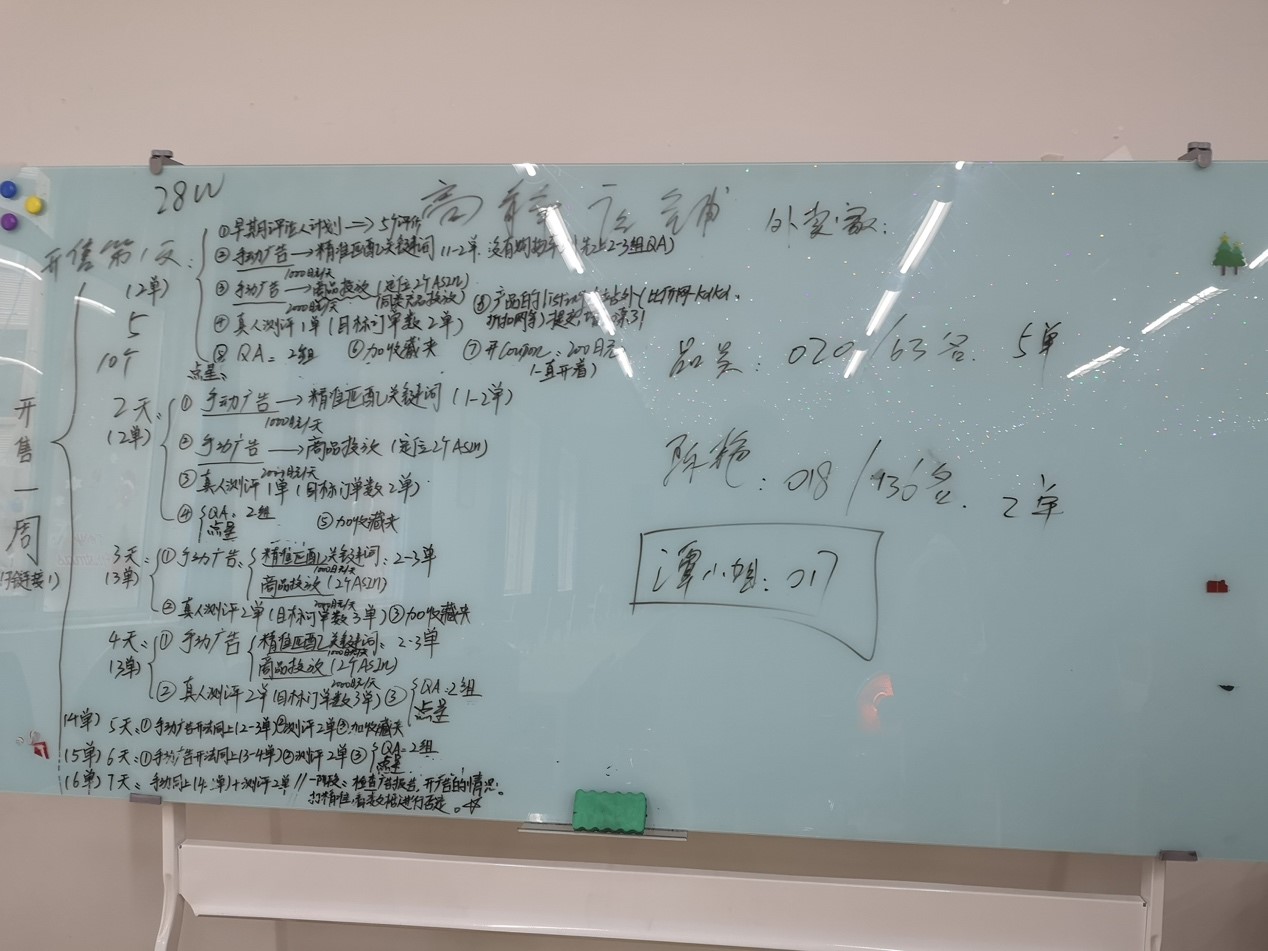 28W
高 店铺
外卖家:
开售第1天:
(2单)
5
10个
①早期评论人计划→5个评价
②手动广告→精准匹配关键词(1-2单. 没有 先上2-3组QA)
1000日元/天
③手动广告→商品投放(定位2个ASIN)
2000日元/天 (同类产品投放)
④真人测评1单(目标订单数2单)
⑧产品的listing 站外(比价网kakaku.
折扣网等)提交
⑤QA:2组 ⑥加收藏夹 ⑦开Coupon:200日元
点星: (一直开着)
品类: 020/63名 5单
开售一周
2天:
(2单)
①手动广告→精准匹配关键词(1-2单)
1000日元/天
②手动广告→商品投放(定位2个ASIN)
2000日元/天
③真人测评1单(目标订单数2单)
④QA:2组 ⑤加收藏夹
点星
陈艳: 018/936名. 2单
谭小姐: 017
3天:
(3单)
①手动广告: 精准匹配关键词: 2-3单
1000日元/天
商品投放(2个ASIN)
2000日元/天
②真人测评2单(目标订单数3单)③加收藏夹
4天:
(3单)
①手动广告 精准匹配关键词: 2-3单
1000日元/天
商品投放(2个ASIN)
2000日元/天
②真人测评2单(目标订单数3单)③QA:2组
点星
(4单) 5天:①手动广告开法同上(2-3单)②测评2单③加收藏夹
(5单) 6天:①手动广告开法同上(3-4单)②测评2单③QA:2组
点星
(6单) 7天: 手动同上(4单)+测评2单//一阶段: 检查广告报告,开广告的情况:
打精准,看表数据进行否定。☆